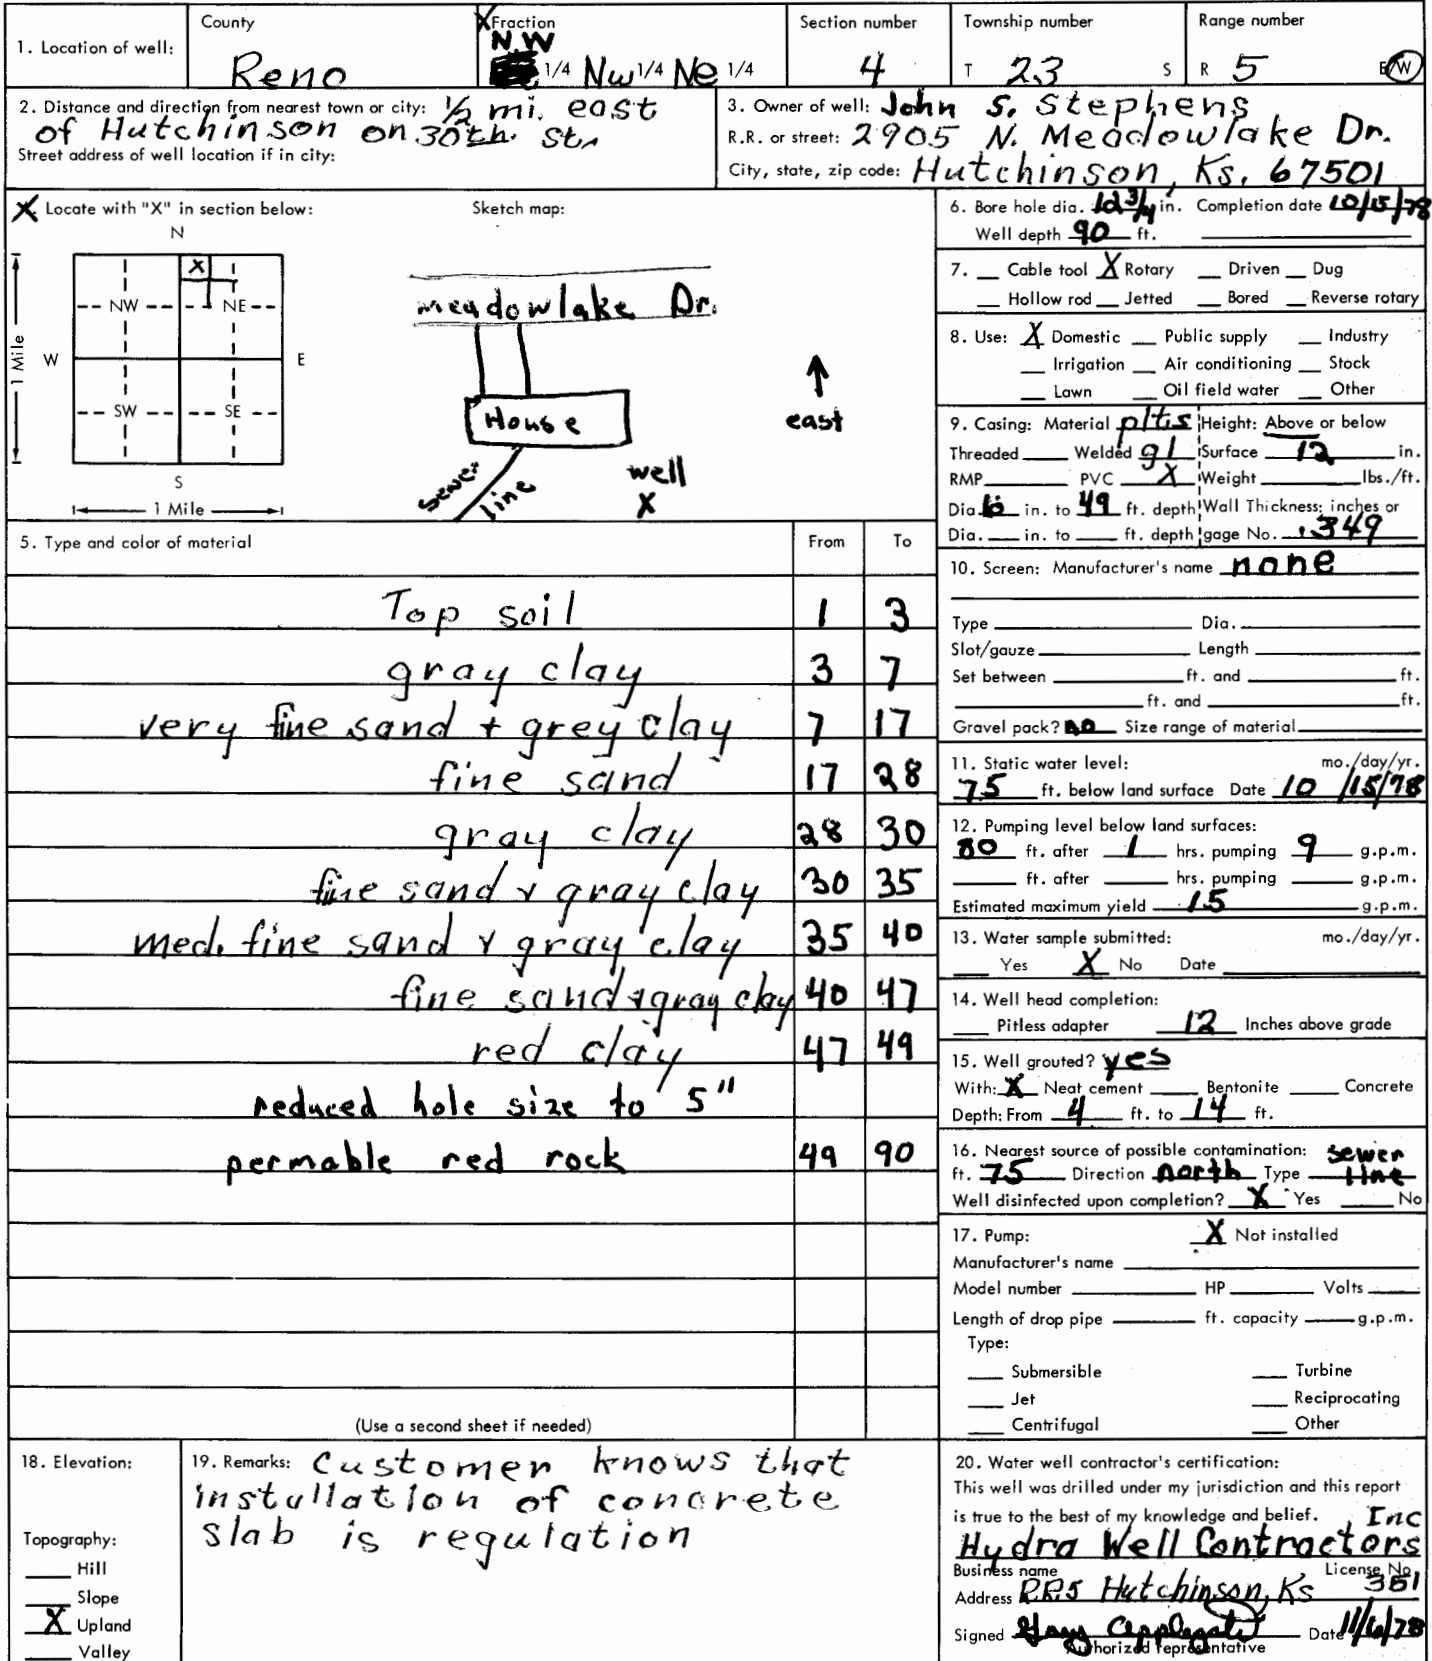 1. Location of well:
County
Reno
X Fraction
NW 1/4 Nw 1/4 Ne 1/4
Section number
4
Township number
T 23 S
Range number
R 5 E/W
2. Distance and direction from nearest town or city: 1/2 mi. east
of Hutchinson on 30th. St.
Street address of well location if in city:
3. Owner of well: John S. Stephens
R.R. or street: 2905 N. Meadowlake Dr.
City, state, zip code: Hutchinson, Ks. 67501
X Locate with "X" in section below:
N
X
NW NE
W E
SW SE
S
1 Mile
1 Mile
Sketch map:
meadowlake Dr.
House
east
sewer line
well
X
5. Type and color of material From To
Top soil 1 3
gray clay 3 7
very fine sand + grey clay 7 17
fine sand 17 28
gray clay 28 30
fine sand & gray clay 30 35
med. fine sand & gray clay 35 40
fine sand & gray clay 40 47
red clay 47 49
reduced hole size to 5"
permable red rock 49 90
(Use a second sheet if needed)
6. Bore hole dia. 12 3/4 in. Completion date 10/15/78
Well depth 90 ft.
7. Cable tool X Rotary Driven Dug
Hollow rod Jetted Bored Reverse rotary
8. Use: X Domestic Public supply Industry
Irrigation Air conditioning Stock
Lawn Oil field water Other
9. Casing: Material plts Height: Above or below
Threaded Welded gl Surface 12 in.
RMP PVC X Weight lbs./ft.
Dia. 6 in. to 49 ft. depth Wall Thickness: inches or
Dia. in. to ft. depth gage No. .349
10. Screen: Manufacturer's name none
Type Dia.
Slot/gauze Length
Set between ft. and ft.
ft. and ft.
Gravel pack? no Size range of material
11. Static water level: mo./day/yr.
75 ft. below land surface Date 10/15/78
12. Pumping level below land surfaces:
80 ft. after 1 hrs. pumping 9 g.p.m.
ft. after hrs. pumping g.p.m.
Estimated maximum yield 15 g.p.m.
13. Water sample submitted: mo./day/yr.
Yes X No Date
14. Well head completion:
Pitless adapter 12 Inches above grade
15. Well grouted? yes
With: X Neat cement Bentonite Concrete
Depth: From 4 ft. to 14 ft.
16. Nearest source of possible contamination: sewer
ft. 75 Direction north Type line
Well disinfected upon completion? X Yes No
17. Pump: X Not installed
Manufacturer's name
Model number HP Volts
Length of drop pipe ft. capacity g.p.m.
Type:
Submersible Turbine
Jet Reciprocating
Centrifugal Other
18. Elevation:
Topography:
Hill
Slope
X Upland
Valley
19. Remarks: Customer knows that
installation of concrete
slab is regulation
20. Water well contractor's certification:
This well was drilled under my jurisdiction and this report
is true to the best of my knowledge and belief. Inc
Hydra Well Contractors
Business name License No.
Address RR5 Hutchinson, Ks 351
Signed Gary Applegate Date 11/6/78
Authorized representative